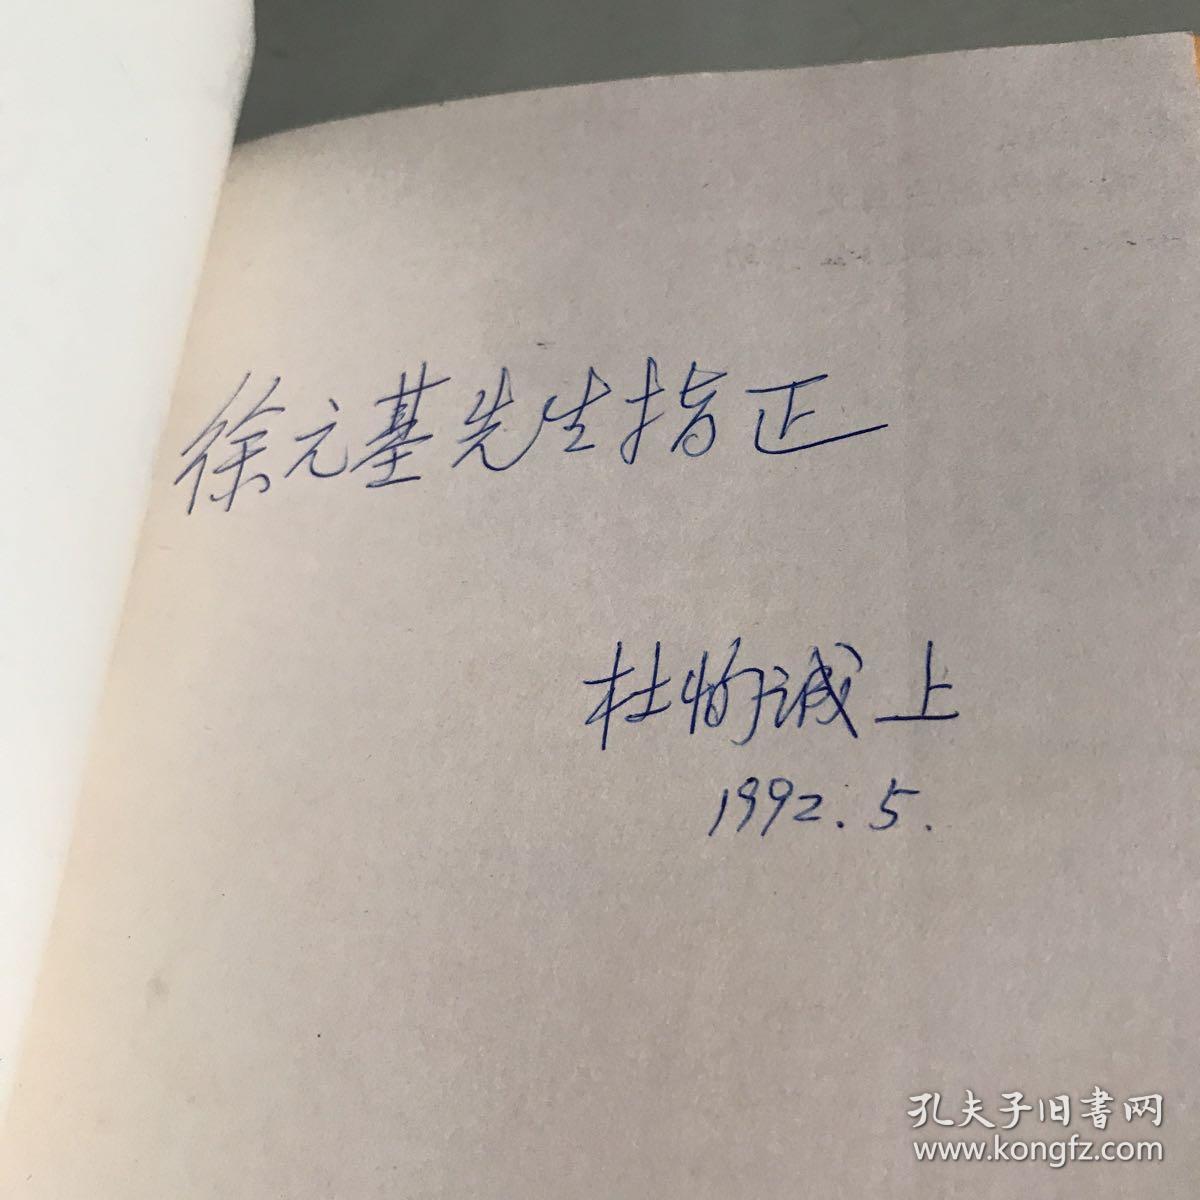 徐元基先生指正
杜恂诚上
1992.5.
孔夫子旧書网
www.kongfz.com